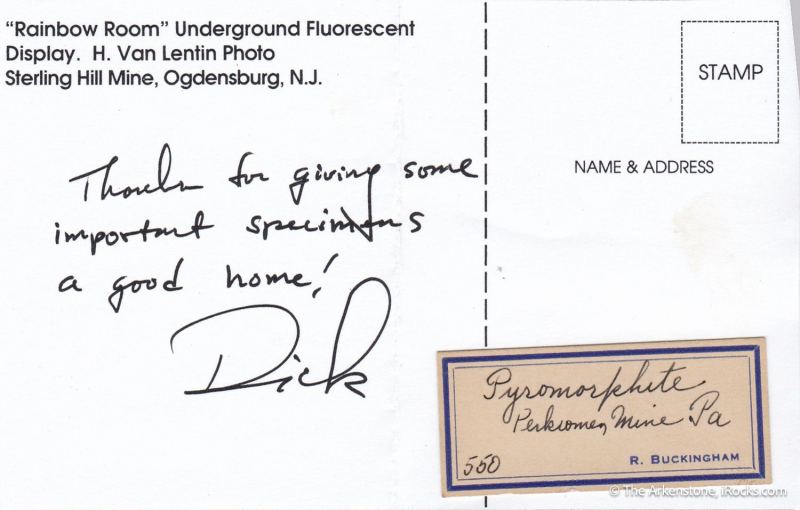 "Rainbow Room" Underground Fluorescent
Display. H. Van Lentin Photo
Sterling Hill Mine, Ogdensburg, N.J.
STAMP
NAME & ADDRESS
Thanks for giving some
important specimens
a good home!
Dick
Pyromorphite
Perkiomen Mine Pa
550
R. BUCKINGHAM
© The Arkenstone, iRocks.com